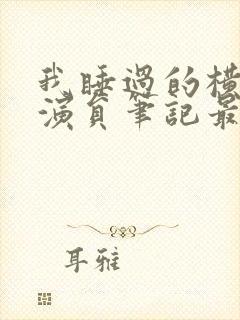 我睡過的橫
演員筆記最
耳雅